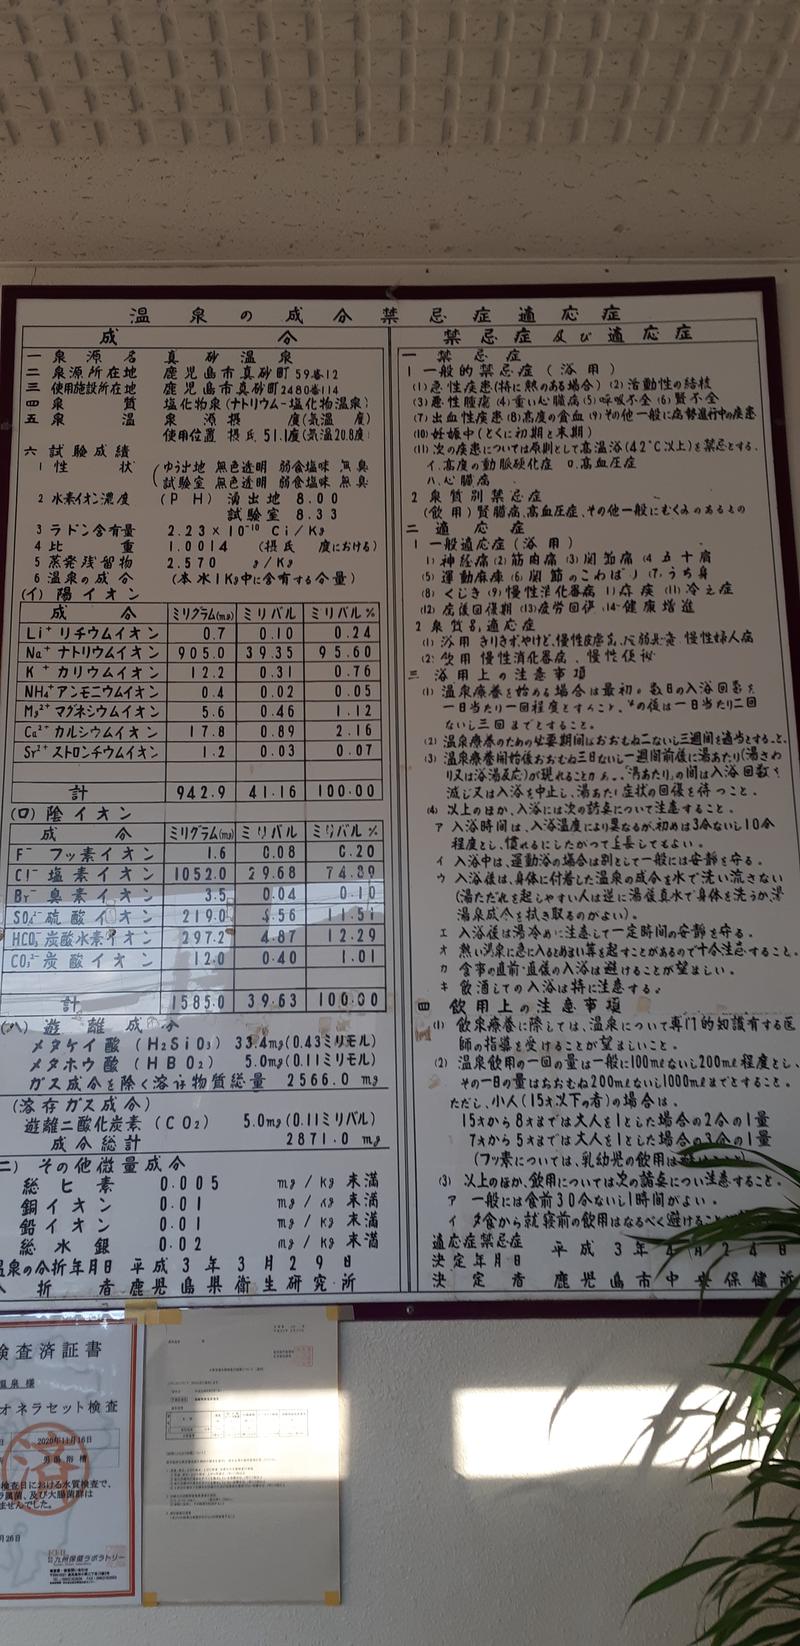 温泉の成分禁忌症適応症
成分
一 泉源名 真砂温泉
二 泉源所在地 鹿児島市真砂町59番12
三 使用施設所在地 鹿児島市真砂町2480番114
四 泉質 塩化物泉(ナトリウム-塩化物温泉)
五 泉温 泉源摂 度(気温 度)
使用位置 摂氏51.1度(気温20.8度)
六 試験成績
1 性状 (ゆう出地 無色透明 弱食塩味 無臭
試験室 無色透明 弱食塩味 無臭
2 水素イオン濃度 (PH) 湧出地 8.00
試験室 8.33
3 ラドン含有量 2.23×10⁻¹⁰ Ci/Kg
4 比重 1.0014 (摂氏 度における)
5 蒸発残留物 2.570 g/Kg
6 温泉の成分 (本水1Kg中に含有する分量)
(イ) 陽イオン
成分 ミリグラム(mg) ミリバル ミリバル%
Li⁺ リチウムイオン 0.7 0.10 0.24
Na⁺ ナトリウムイオン 905.0 39.35 95.60
K⁺ カリウムイオン 12.2 0.31 0.76
NH₄⁺ アンモニウムイオン 0.4 0.02 0.05
Mg²⁺ マグネシウムイオン 5.6 0.46 1.12
Ca²⁺ カルシウムイオン 17.8 0.89 2.16
Sr²⁺ ストロンチウムイオン 1.2 0.03 0.07
計 942.9 41.16 100.00
(ロ) 陰イオン
成分 ミリグラム(mg) ミリバル ミリバル%
F⁻ フッ素イオン 1.6 0.08 0.20
Cl⁻ 塩素イオン 1052.0 29.68 74.89
Br⁻ 臭素イオン 3.5 0.04 0.10
SO₄²⁻ 硫酸イオン 219.0 4.56 11.51
HCO₃⁻ 炭酸水素イオン 297.2 4.87 12.29
CO₃²⁻ 炭酸イオン 12.0 0.40 1.01
計 1585.0 39.63 100.00
(ハ) 遊離成分
メタケイ酸 (H₂SiO₃) 33.4mg(0.43ミリモル)
メタホウ酸 (HBO₂) 5.0mg(0.11ミリモル)
ガス成分を除く溶存物質総量 2566.0 mg
(溶存ガス成分)
遊離二酸化炭素 (CO₂) 5.0mg(0.11ミリバル)
成分総計 2871.0 mg
二) その他微量成分
総ヒ素 0.005 mg/kg 未満
銅イオン 0.01 mg/kg 未満
鉛イオン 0.01 mg/kg 未満
総水銀 0.02 mg/kg 未満
温泉の分析年月日 平成3年3月29日
析者 鹿児島県衛生研究所
禁忌症及び適応症
一 禁忌症
1 一般的禁忌症(浴用)
(1)急性疾患(特に熱のある場合) (2)活動性の結核
(3)悪性腫瘍 (4)重い心臓病 (5)呼吸不全 (6)腎不全
(7)出血性疾患 (8)高度の貧血 (9)その他一般に病勢進行中の疾患
(10)妊娠中(とくに初期と末期)
(11)次の疾患については原則として高温浴(42℃以上)を禁忌とする。
イ.高度の動脈硬化症 ロ.高血圧症
ハ.心臓病
2 泉質別禁忌症
(飲用) 腎臓病、高血圧症、その他一般にむくみのあるもの
二 適応症
1 一般適応症(浴用)
1) 神経痛 (2) 筋肉痛 (3) 関節痛 (4 五十肩
(5) 運動麻痺 (6) 関節のこわばり (7)うち身
(8) くじき (9) 慢性消化器病 1) 痔疾 (11) 冷え症
(12) 病後回復期 (13)疲労回復 (14 健康増進
2 泉質別適応症
(1) 浴用 きりきず、やけど、慢性皮膚病、虚弱児童、慢性婦人病
(2) 飲用 慢性消化器病、慢性便秘
三 浴用上の注意事項
(1) 温泉療養を始める場合は最初の数日の入浴回数を
一日当たり一回程度とすること。その後は一日当たり二回
ないし三回までとすること。
(2) 温泉療養のための必要期間はおおむね二ないし三週間を適当とすること。
(3) 温泉療養開始後おおむね三日ないし一週間前後に湯あたり(湯さわ
り又は浴湯反応)が現れることがある。「湯あたり」の間は入浴回数を
減じ又は入浴を中止し、湯あたり症状の回復を待つこと。
(4) 以上のほか、入浴には次の諸点について注意すること。
ア 入浴時間は、入浴温度により異なるが、初めは3分ないし10分
程度とし、慣れるにしたがって延長してもよい。
イ 入浴中は、運動浴の場合は別として一般には安静を守る。
ウ 入浴後は、身体に付着した温泉の成分を水で洗い流さない
(湯ただれを起しやすい人は逆に浴後真水で身体を洗うか、
温泉成分を拭き取るのがよい)。
エ 入浴後は湯冷めに注意して一定時間の安静を守る。
オ 熱い湯泉に急に入るとめまい等を起すことがあるので十分注意すること。
カ 食事の直前・直後の入浴は避けることが望ましい。
キ 飲酒しての入浴は特に注意する。
四 飲用上の注意事項
(1) 飲泉療養に際しては、温泉について専門的知識有する医
師の指導を受けることが望ましいこと。
(2) 温泉飲用の一回の量は一般に100mlないし200ml程度とし、
その一日の量はおおむね200mlないし1000mlまでとすること。
ただし、小人(15才以下の者)の場合は、
15才から8才までは大人を1とした場合の2分の1量
7才から5才までは大人を1とした場合の3分の1量
(フッ素については、乳幼児の飲用は
(3) 以上のほか、飲用については次の諸点につい注意すること。
ア 一般には食前30分ないし1時間がよい。
イ 夕食から就寝前の飲用はなるべく避けること
適応症禁忌症
決定年月日 平成3年4月24日
決定者 鹿児島市中央保健所
検査済証書
温泉 様
オネラセット検査
2020年11月16日
男湯 浴槽
済
検査日における水質検査で、
ラ属菌、及び大腸菌群は
ませんでした。
月26日
九州保健ラボラトリー